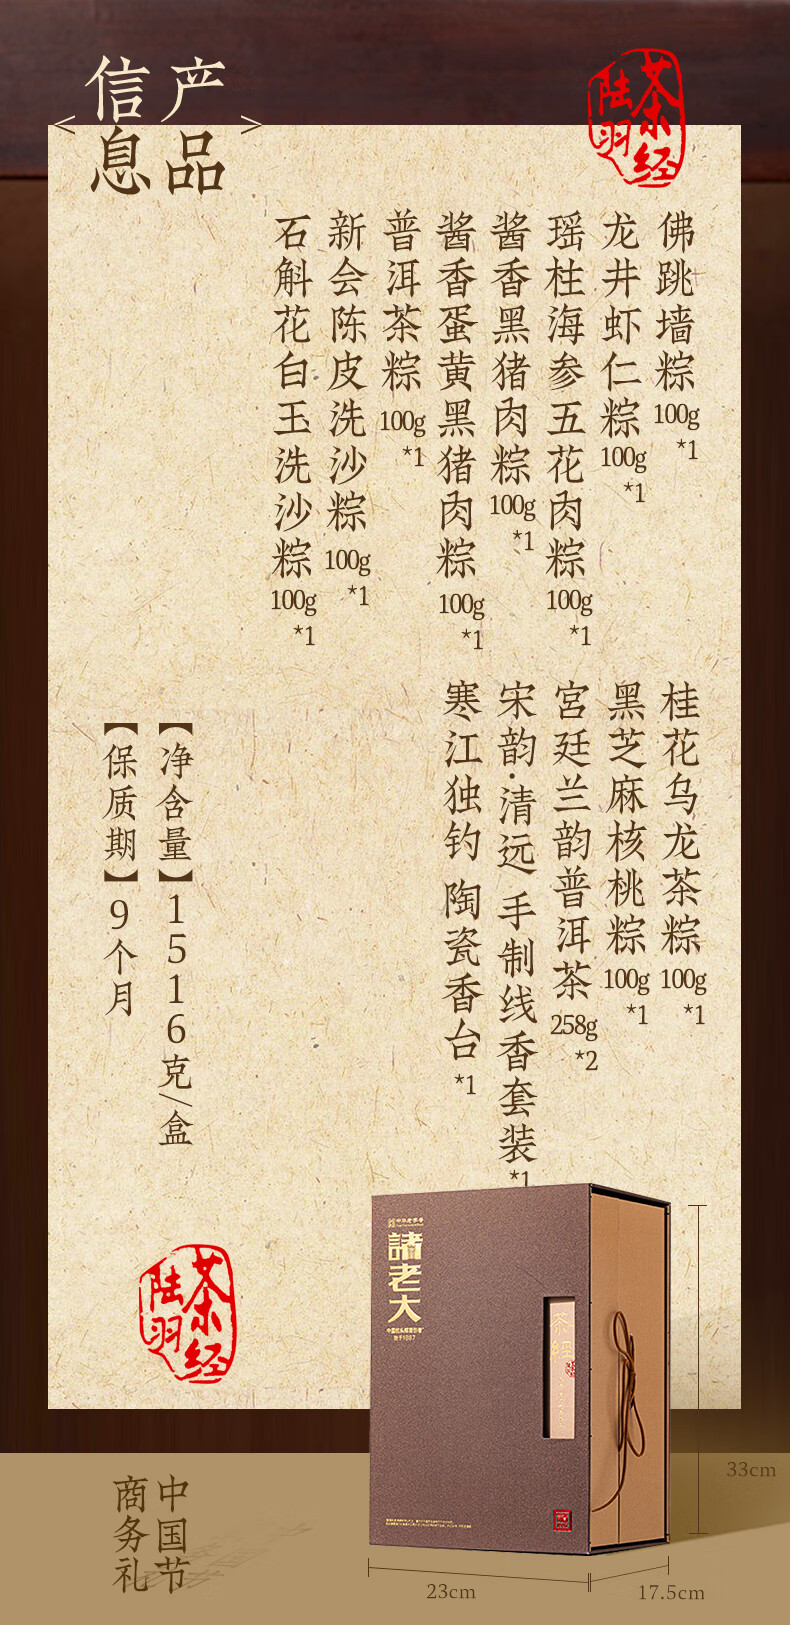 产品
信息
茶经
陆羽
佛跳墙粽100g*1
龙井虾仁粽100g*1
瑶柱海参五花肉粽100g*1
酱香黑猪肉粽100g*1
酱香蛋黄黑猪肉粽100g*1
普洱茶粽100g*1
新会陈皮洗沙粽100g*1
石斛花白玉洗沙粽100g*1
桂花乌龙茶粽100g*1
黑芝麻核桃粽100g*1
宫廷兰韵普洱茶258g*2
宋韵·清远 手制线香套装*1
寒江独钓 陶瓷香台*1
【净含量】1516克/盒
【保质期】9个月
茶经
陆羽
諸老大
茶經
33cm
23cm
17.5cm
中国节
商务礼